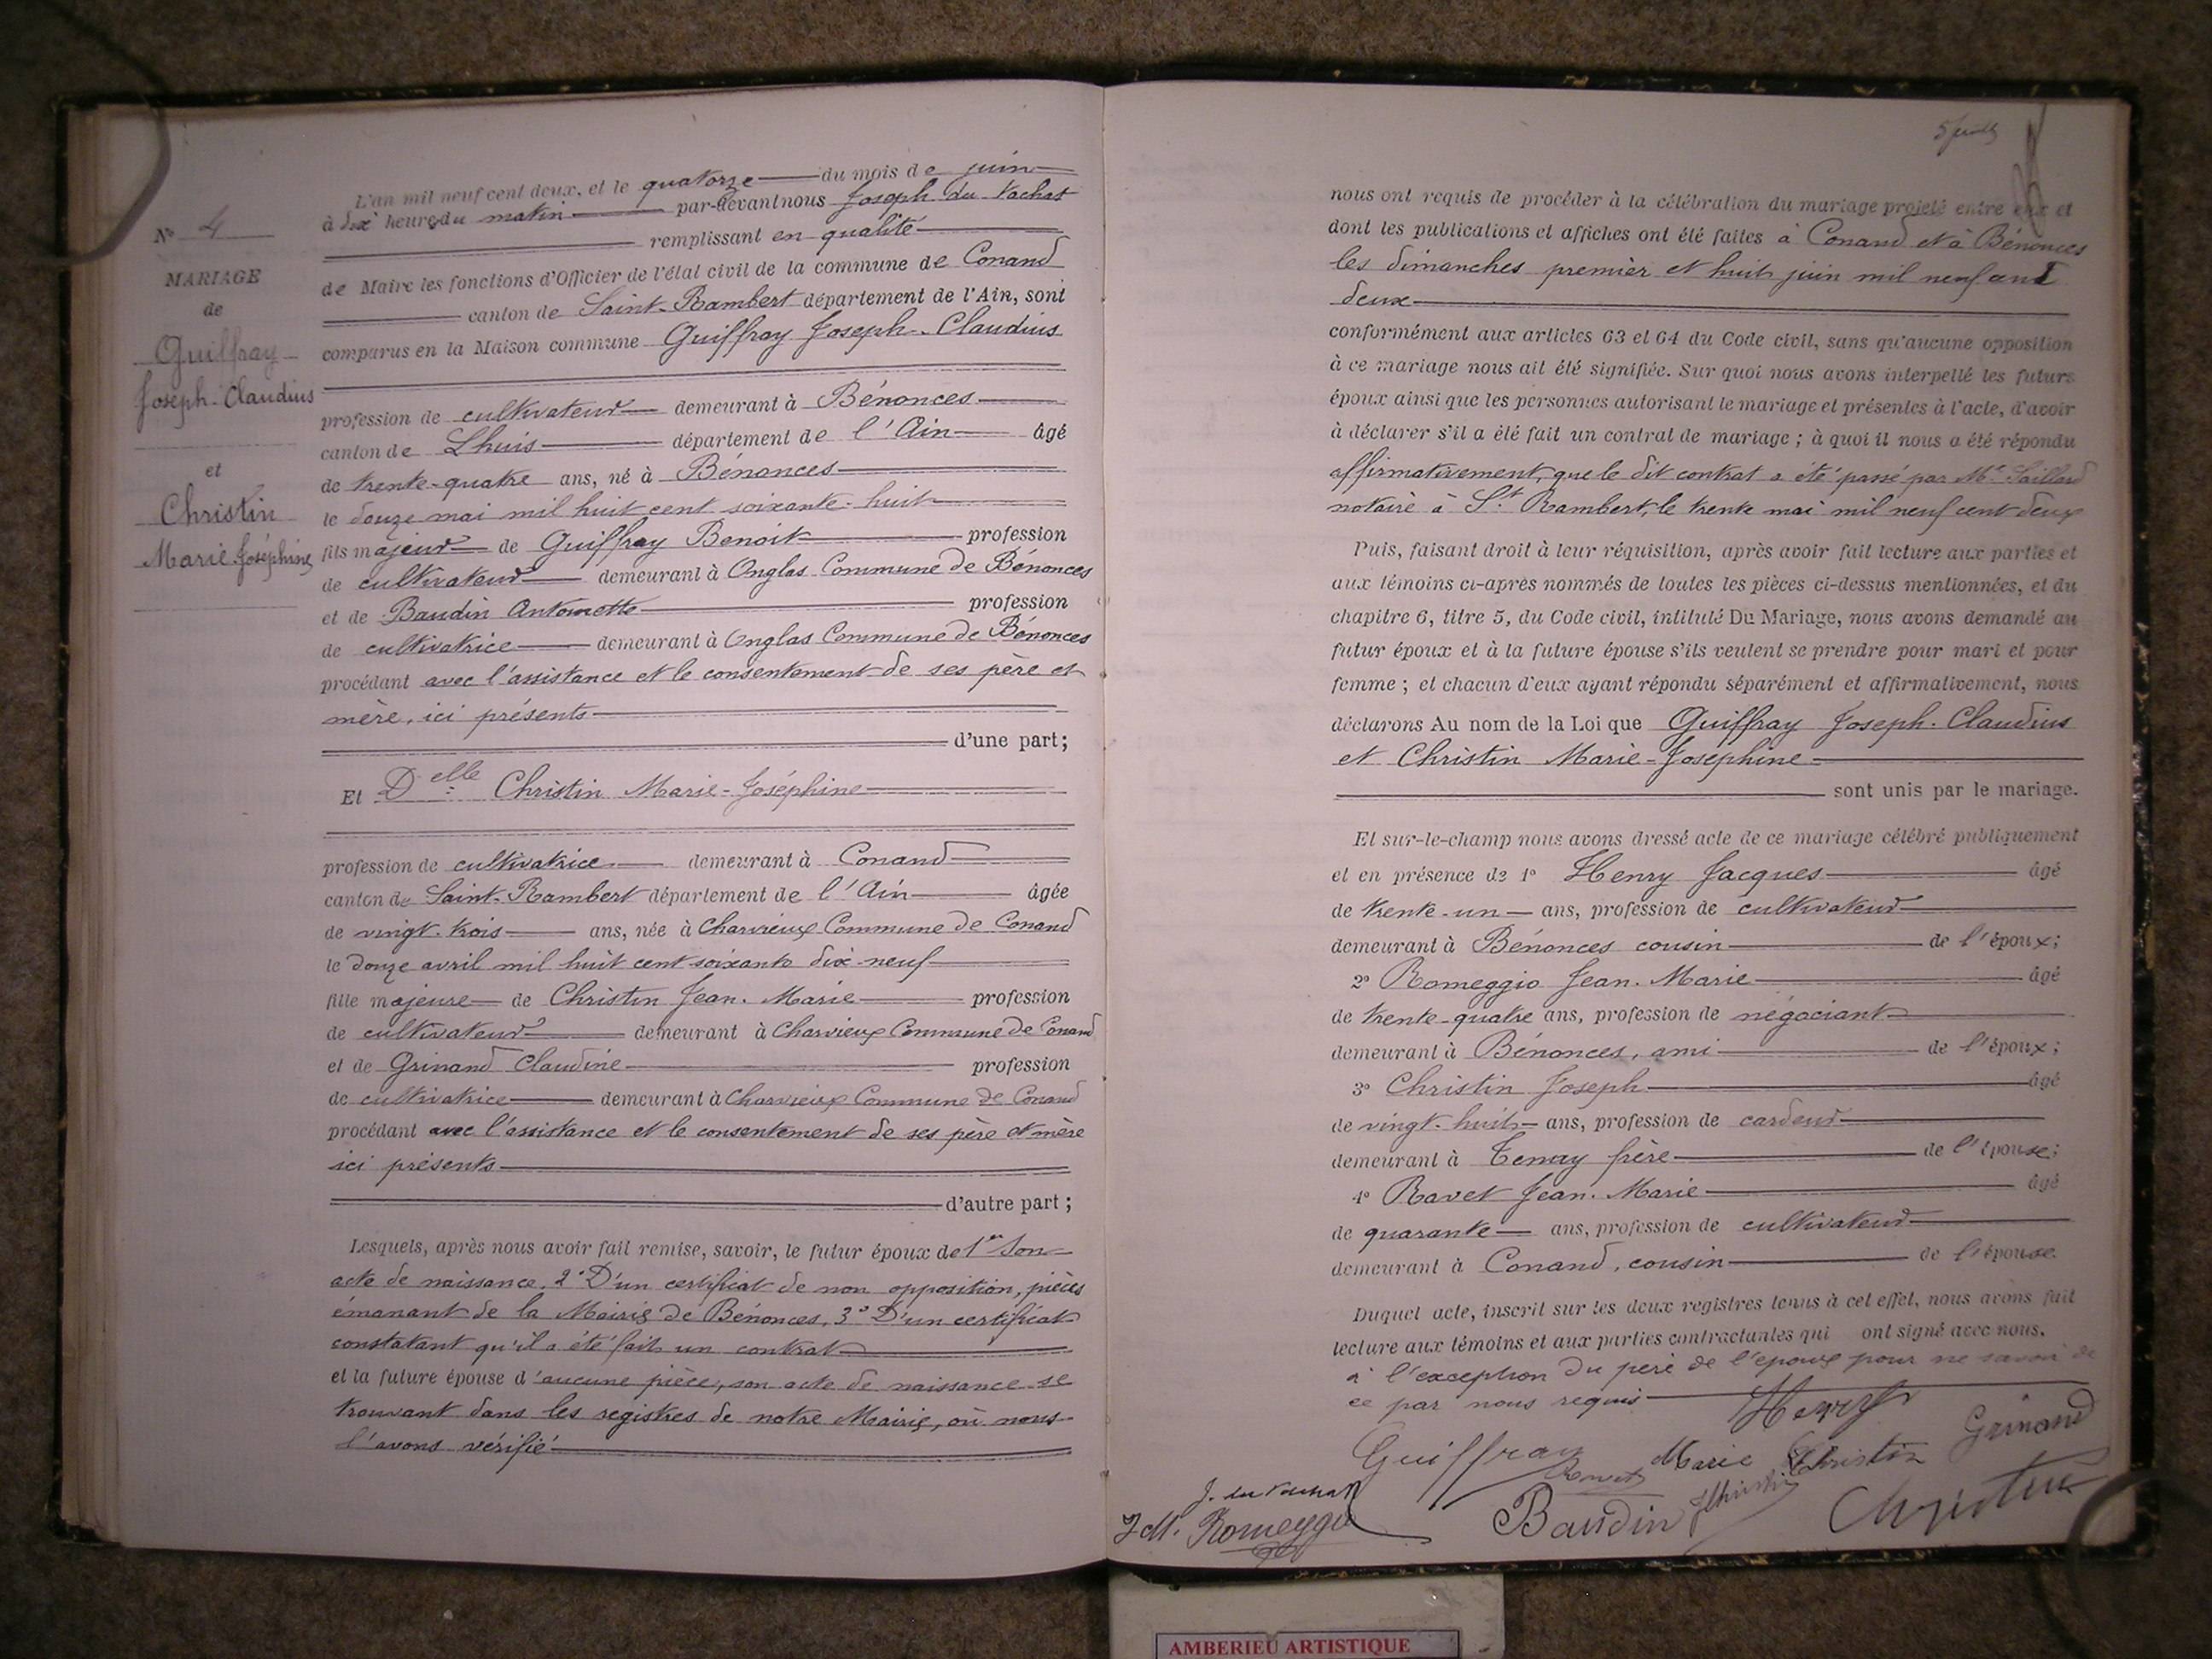 N° 4
MARIAGE
de
Guiffray
Joseph-Claudius
et
Christin
Marie-Joséphine
L'an mil neuf cent deux, et le quatorze du mois de juin
à dix heures du matin par-devant nous Joseph du Vachat
remplissant en qualité
de Maire les fonctions d'Officier de l'état civil de la commune de Conand
canton de Saint-Rambert département de l'Ain, sont
comparus en la Maison commune Guiffray Joseph-Claudius
profession de cultivateur demeurant à Bénonces
canton de Lhuis département de l'Ain âgé
de trente-quatre ans, né à Bénonces
le douze mai mil huit cent soixante-huit
fils majeur de Guiffray Benoit profession
de cultivateur demeurant à Onglas Commune de Bénonces
et de Baudin Antoinette profession
de cultivatrice demeurant à Onglas Commune de Bénonces
procédant avec l'assistance et le consentement de ses père et
mère, ici présents
d'une part;
Et Delle Christin Marie-Joséphine
profession de cultivatrice demeurant à Conand
canton de Saint-Rambert département de l'Ain âgée
de vingt-trois ans, née à Charvieux Commune de Conand
le douze avril mil huit cent soixante dix-neuf
fille majeure de Christin Jean-Marie profession
de cultivateur demeurant à Charvieux Commune de Conand
et de Grinand Claudine profession
de cultivatrice demeurant à Charvieux Commune de Conand
procédant avec l'assistance et le consentement de ses père et mère
ici présents
d'autre part;
Lesquels, après nous avoir fait remise, savoir, le futur époux de 1° Son
acte de naissance, 2° D'un certificat de non opposition, pièces
émanant de la Mairie de Bénonces, 3° D'un certificat
constatant qu'il a été fait un contrat
et la future épouse d'aucune pièce, son acte de naissance se
trouvant dans les registres de notre Mairie, où nous
l'avons vérifié
nous ont requis de procéder à la célébration du mariage projeté entre eux et
dont les publications et affiches ont été faites à Conand et à Bénonces
les dimanches premier et huit juin mil neuf cent
deux
conformément aux articles 63 et 64 du Code civil, sans qu'aucune opposition
à ce mariage nous ait été signifiée. Sur quoi nous avons interpellé les futurs
époux ainsi que les personnes autorisant le mariage et présentes à l'acte, d'avoir
à déclarer s'il a été fait un contrat de mariage; à quoi il nous a été répondu
affirmativement, que le dit contrat a été passé par Me Saillard
notaire à St Rambert, le trente mai mil neuf cent deux
Puis, faisant droit à leur réquisition, après avoir fait lecture aux parties et
aux témoins ci-après nommés de toutes les pièces ci-dessus mentionnées, et du
chapitre 6, titre 5, du Code civil, intitulé Du Mariage, nous avons demandé au
futur époux et à la future épouse s'ils veulent se prendre pour mari et pour
femme; et chacun d'eux ayant répondu séparément et affirmativement, nous
déclarons Au nom de la Loi que Guiffray Joseph-Claudius
et Christin Marie-Joséphine
sont unis par le mariage.
Et sur-le-champ nous avons dressé acte de ce mariage célébré publiquement
et en présence de 1° Henry Jacques âgé
de trente-un ans, profession de cultivateur
demeurant à Bénonces cousin de l'époux;
2° Romeggio Jean-Marie âgé
de trente-quatre ans, profession de négociant
demeurant à Bénonces, ami de l'époux;
3° Christin Joseph âgé
de vingt-huit ans, profession de cardeur
demeurant à Tenay frère de l'épouse;
4° Ravet Jean-Marie âgé
de quarante ans, profession de cultivateur
demeurant à Conand, cousin de l'épouse.
Duquel acte, inscrit sur les deux registres tenus à cet effet, nous avons fait
lecture aux témoins et aux parties contractantes qui ont signé avec nous.
à l'exception du père de l'époux pour ne savoir de
ce par nous requis
Henry
Grinand
Guiffray
Marie Christin
Ravet
J Christin
J. du Vachat
J M. Romeggio
Baudin
Christin
AMBERIEU ARTISTIQUE